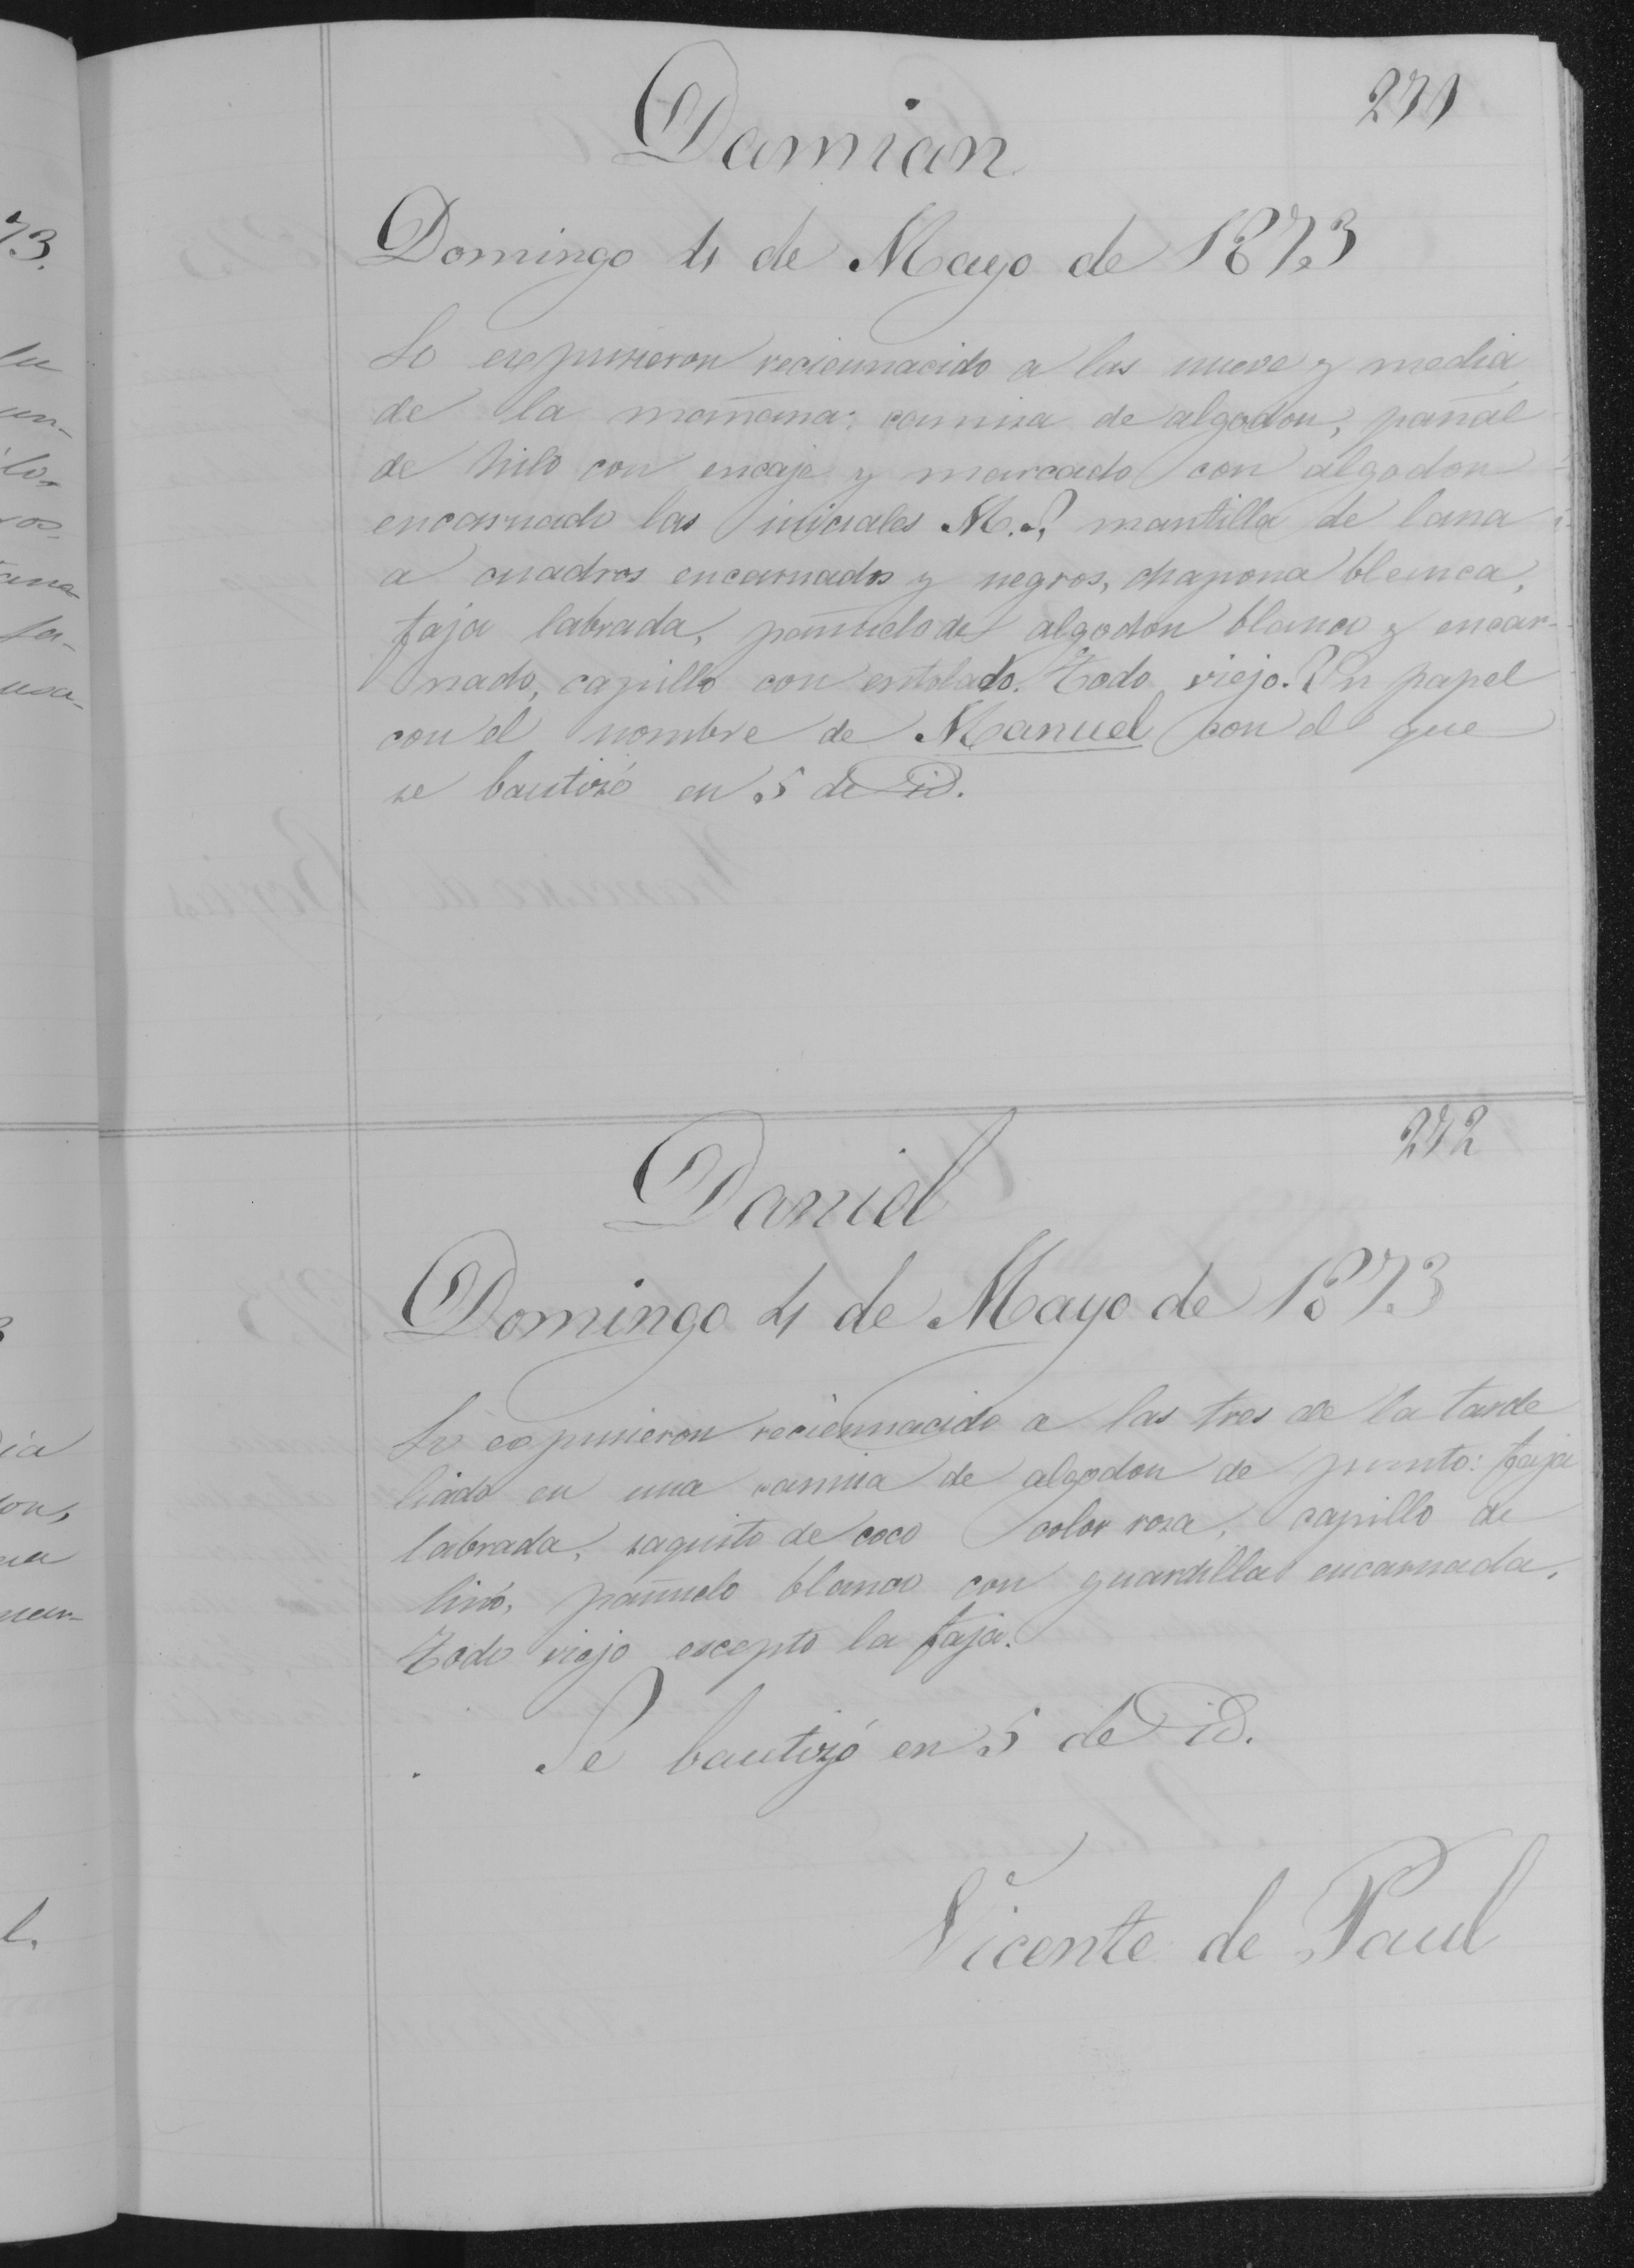 271
Damian
Domingo 4 de Mayo de 1873
Lo expusieron reciennacido a las nueve y media
de la mañana: camisa de algodon, pañal
de hilo con encaje y marcado con algodon
encarnado las iniciales M.P, mantilla de lana
a cuadros encarnados y negros, chapona blanca,
faja labrada, pañuelo de algodon blanco y encar-
nado, capillo con entolado. Todo viejo. Un papel
con el nombre de Manuel con el que
se bautizó en 5 de id.
272
Daniel
Domingo 4 de Mayo de 1873
Lo expusieron reciennacido a las tres de la tarde
liado en una camisa de algodon de punto: faja
labrada, saquito de coco color rosa, capillo de
linó, pañuelo blanco con guardilla encarnada.
Todo viejo escepto la faja.
Se bautizó en 5 de id.
Vicente de Paul